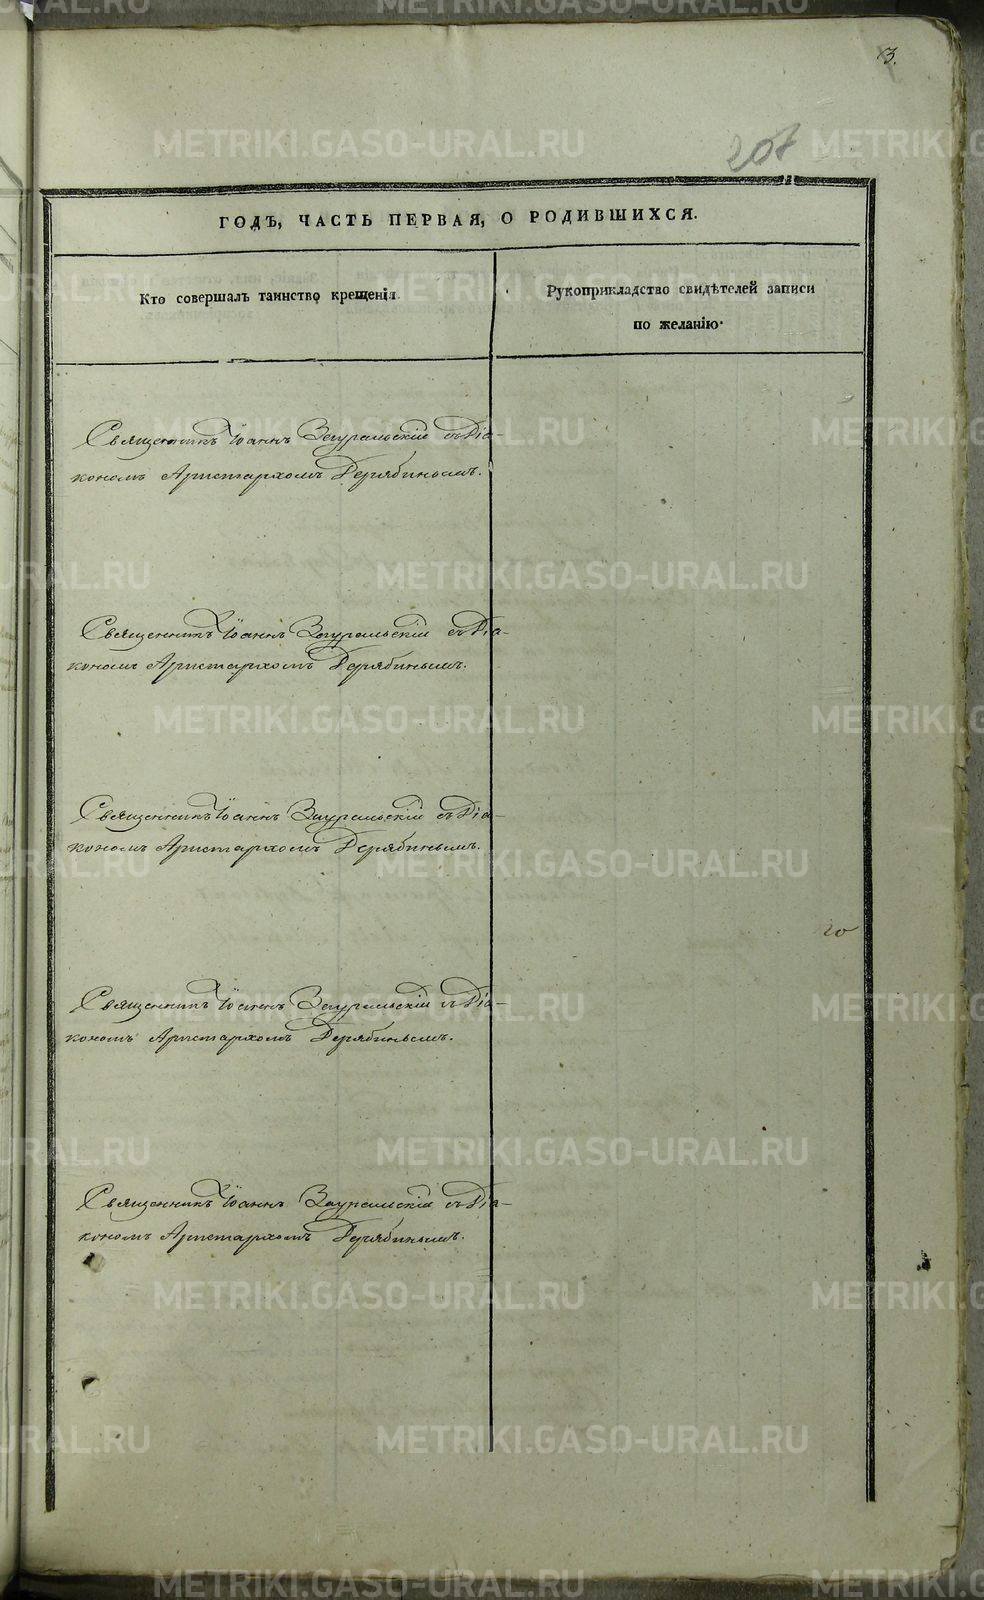 3.
207
ГОДЪ, ЧАСТЬ ПЕРВАЯ, О РОДИВШИХСЯ.
Кто совершалъ таинство крещенія.
Рукоприкладство свидѣтелей записи
по желанію.
Священникъ Іоаннъ Зауральскій съ Діа-
кономъ Аристархомъ Дерябинымъ.
Священникъ Іоаннъ Зауральскій съ Діа-
кономъ Аристархомъ Дерябинымъ.
Священникъ Іоаннъ Зауральскій съ Діа-
кономъ Аристархомъ Дерябинымъ.
Священникъ Іоаннъ Зауральскій съ Діа-
кономъ Аристархомъ Дерябинымъ.
Священникъ Іоаннъ Зауральскій съ Діа-
кономъ Аристархомъ Дерябинымъ.
METRIKI.GASO-URAL.RU